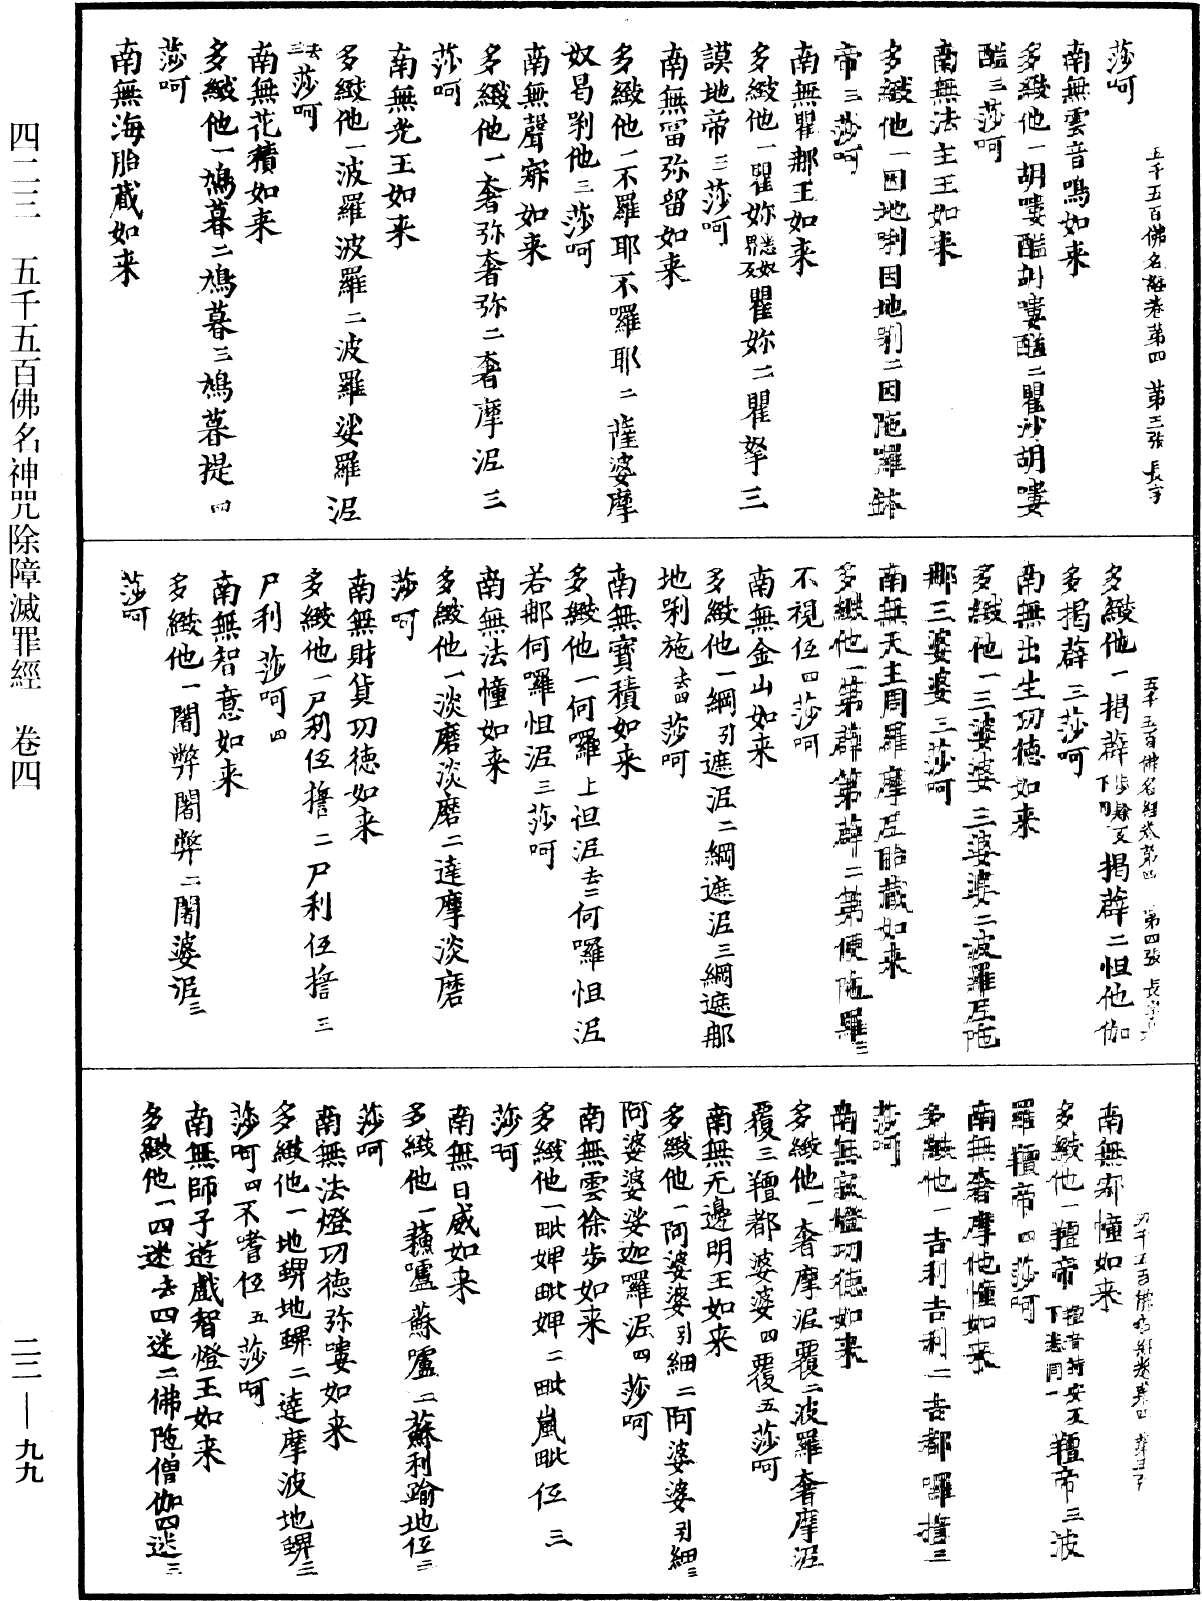 莎呵
南無雲音鳴如来
多緻他一胡嘍醯胡嘍醯二瞿沙胡嘍
醯三莎呵
南無法主王如来
多緻他一因地唎因地唎二因陁羅鉢
帝三莎呵
南無瞿那王如来
多緻他一瞿妳瞿妳二瞿拏三
謨地帝三莎呵
南無畱弥留如来
多緻他一不羅耶不囉耶二薩婆摩
奴曷剃他三莎呵
南無聲寂如来
多緻他一奢弥奢弥二奢摩泥三
莎呵
南無光王如来
多緻他一波羅波羅二波羅娑羅泥
去三莎呵
南無花積如来
多緻他一鳩暮二鳩暮三鳩暮提四
莎呵
南無海胎蔵如来
五千五百佛名經卷第四 第三張 長字
多緻他一揭薜揭薜二怛他伽
多揭薜三莎呵
南無出生功徳如来
多緻他一三婆婆三婆婆二波羅底陁
那三婆婆三莎呵
南無天主周羅摩底胎蔵如来
多緻他一第薜第薜二第便陁羅三
不視伍四莎呵
南無金山如来
多緻他一綱引遮泥二綱遮泥三綱遮那
地唎施去四莎呵
南無寶積如来
多緻他一何囉上怛泥去二何囉怛泥
若那何囉怛泥三莎呵
南無法幢如来
多緻他一淡磨淡磨二達摩淡磨
莎呵
南無財貨功徳如来
多緻他一尸利伍擔二尸利伍擔三
尸利莎呵四
南無智意如来
多緻他一闍弊闍弊二闍婆泥三
莎呵
五千五百佛名經卷第四 第四張 長字
南無寂幢如来
多緻他一羶帝羶帝三波
羅羶帝四莎呵
南無奢摩他幢如来
多緻他一吉利吉利二吉都囉擔三
莎呵
南無寂燈功徳如来
多緻他一奢摩泥覆二波羅奢摩泥
覆三羶都婆婆四覆五莎呵
南無无邊明王如来
多緻他一阿婆婆引細二阿婆婆引細三
阿婆婆娑迦羅泥四莎呵
南無雲徐步如来
多緻他一毗婢毗婢二毗嵐毗伍三
莎呵
南無日威如来
多緻他一蘓嚧蘇嚧二蘇利踰地伍三
莎呵
南無法燈功徳弥嘍如来
多緻他一地鞞地鞞二達摩波地鞞三
莎呵四不嗜伍五莎呵
南無師子遊戯智燈王如来
多緻他一四迷去四迷二佛陁僧伽四迷三
四二三 五千五百佛名神咒除障滅罪經 卷四
二二—九九